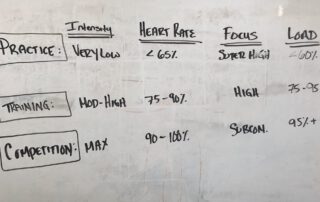 Intensity HEART RATE FOCUS LOAD
PRACTICE: VERY LOW <65% SUPER HIGH <60%
TRAINING: MOD-HIGH 75-90% HIGH 75-95
COMPETITION: MAX 90-100% SUBCON. 95%+